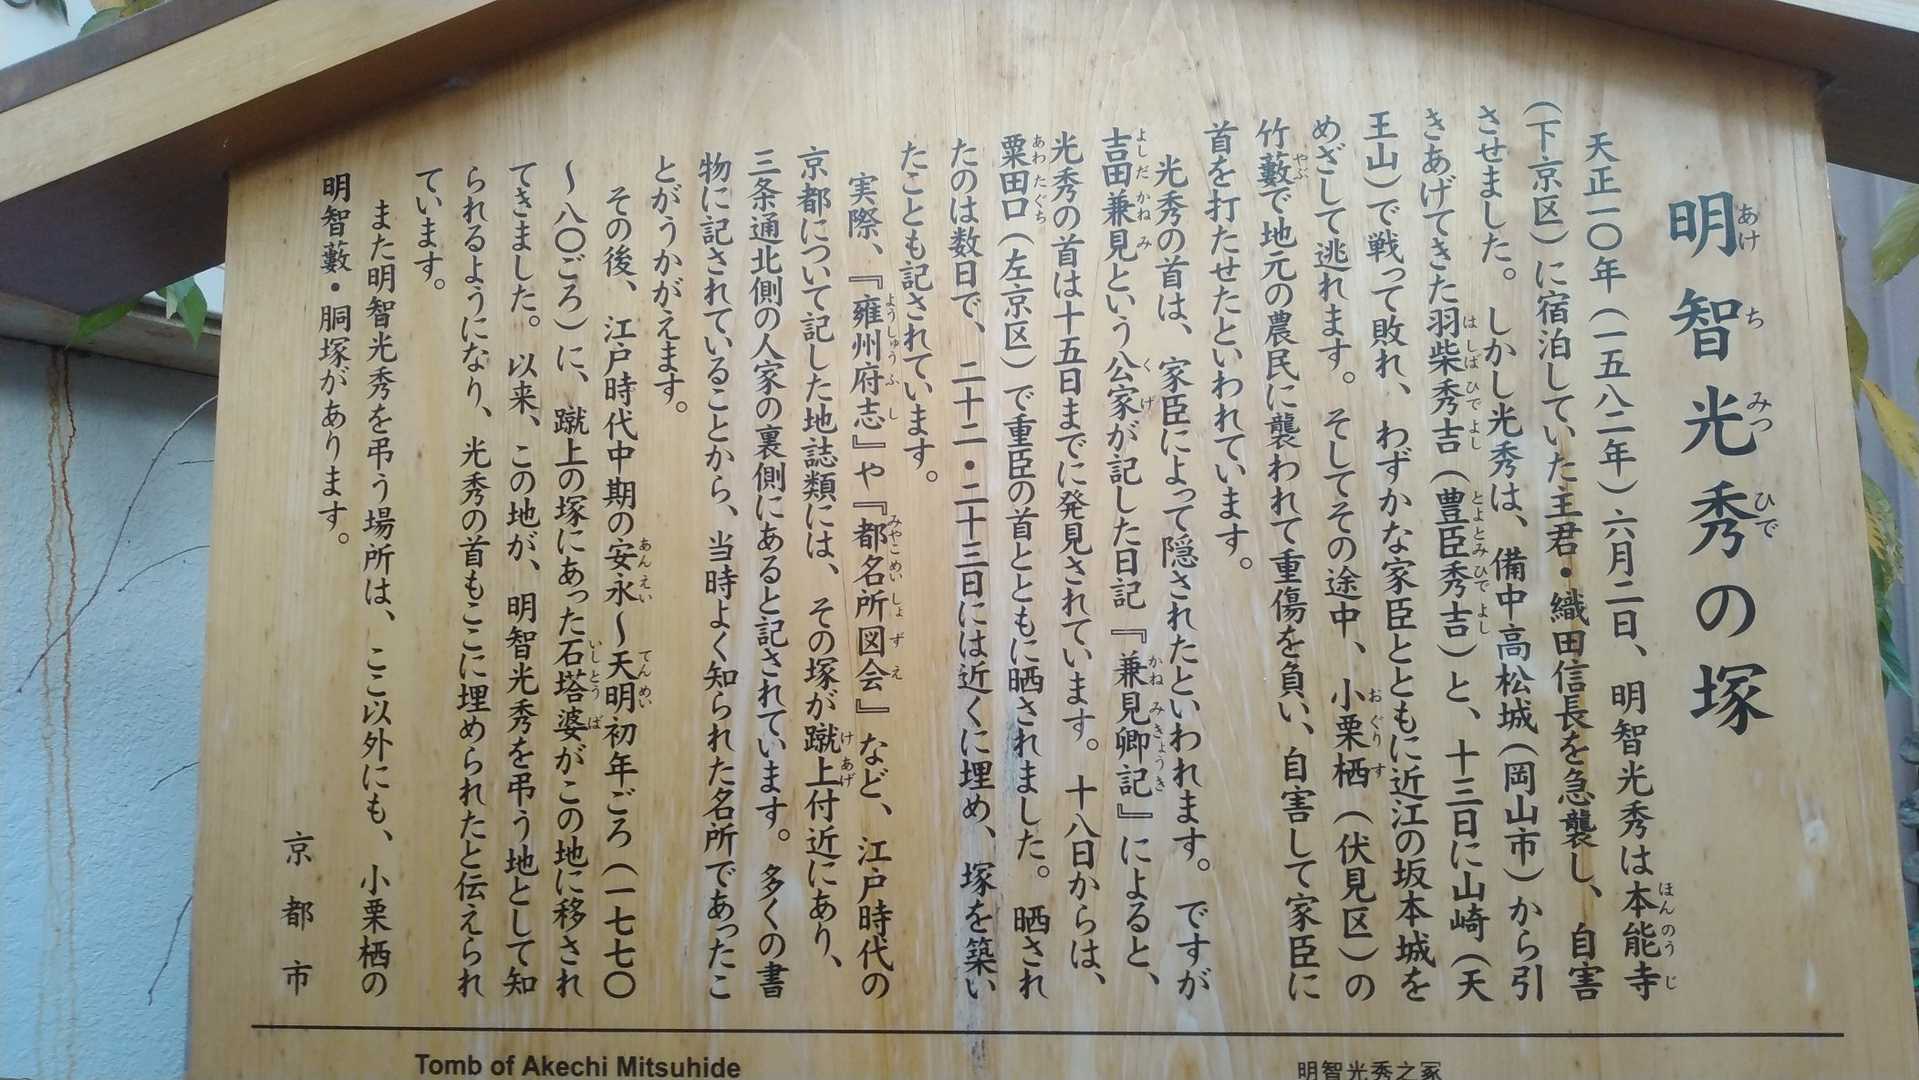 明智光秀の塚
天正一〇年（一五八二年）六月二日、明智光秀は本能寺
（下京区）に宿泊していた主君・織田信長を急襲し、自害
させました。しかし光秀は、備中高松城（岡山市）から引
きあげてきた羽柴秀吉（豊臣秀吉）と、十三日に山崎（天
王山）で戦って敗れ、わずかな家臣とともに近江の坂本城を
めざして逃れます。そしてその途中、小栗栖（伏見区）の
竹藪で地元の農民に襲われて重傷を負い、自害して家臣に
首を打たせたといわれています。
光秀の首は、家臣によって隠されたといわれます。ですが
吉田兼見という公家が記した日記『兼見卿記』によると、
光秀の首は十五日までに発見されています。十八日からは、
粟田口（左京区）で重臣の首とともに晒されました。晒され
たのは数日で、二十二・二十三日には近くに埋め、塚を築い
たことも記されています。
実際、『雍州府志』や『都名所図会』など、江戸時代の
京都について記した地誌類には、その塚が蹴上付近にあり、
三条通北側の人家の裏側にあると記されています。多くの書
物に記されていることから、当時よく知られた名所であったこ
とがうかがえます。
その後、江戸時代中期の安永〜天明初年ごろ（一七七〇
〜八〇ごろ）に、蹴上の塚にあった石塔婆がこの地に移され
てきました。以来、この地が、明智光秀を弔う地として知
られるようになり、光秀の首もここに埋められたと伝えられ
ています。
また明智光秀を弔う場所は、ここ以外にも、小栗栖の
明智藪・胴塚があります。
京都市
Tomb of Akechi Mitsuhide
明智光秀之冢